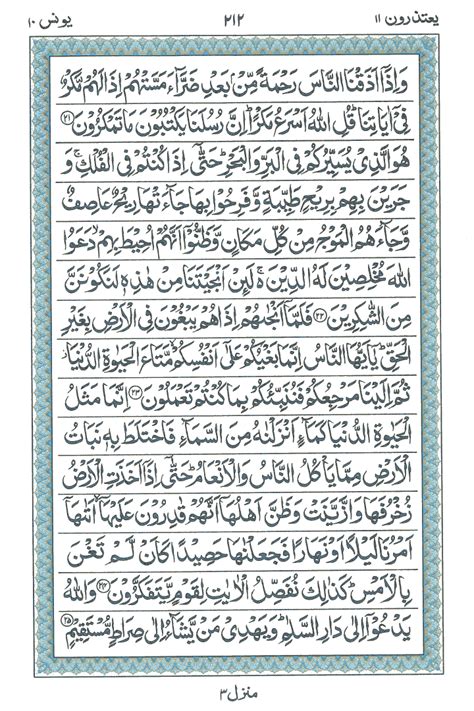 یعتذرون ۱۱
۲۱۲
یونس ۱۰
وَاِذَاۤ اَذَقْنَا النَّاسَ رَحْمَةً مِّنْۢ بَعْدِ ضَرَّآءَ مَسَّتْهُمْ اِذَا لَهُمْ مَّكْرٌ
فِیْۤ اٰیَاتِنَا ؕ قُلِ اللّٰهُ اَسْرَعُ مَكْرًا ؕ اِنَّ رُسُلَنَا یَكْتُبُوْنَ مَا تَمْكُرُوْنَ ﴿۲۱﴾
هُوَ الَّذِیْ یُسَیِّرُكُمْ فِی الْبَرِّ وَالْبَحْرِ ؕ حَتّٰۤی اِذَا كُنْتُمْ فِی الْفُلْكِ ۚ وَ
جَرَیْنَ بِهِمْ بِرِیْحٍ طَیِّبَةٍ وَّفَرِحُوْا بِهَا جَآءَتْهَا رِیْحٌ عَاصِفٌ
وَّجَآءَهُمُ الْمَوْجُ مِنْ كُلِّ مَكَانٍ وَّظَنُّوْۤا اَنَّهُمْ اُحِیْطَ بِهِمْ ۙ دَعَوُا
اللّٰهَ مُخْلِصِیْنَ لَهُ الدِّیْنَ ۚ لَئِنْ اَنْجَیْتَنَا مِنْ هٰذِهٖ لَنَكُوْنَنَّ
مِنَ الشّٰكِرِیْنَ ﴿۲۲﴾ فَلَمَّاۤ اَنْجٰىهُمْ اِذَا هُمْ یَبْغُوْنَ فِی الْاَرْضِ بِغَیْرِ
الْحَقِّ ؕ یٰۤاَیُّهَا النَّاسُ اِنَّمَا بَغْیُكُمْ عَلٰۤی اَنْفُسِكُمْ ۙ مَّتَاعَ الْحَیٰوةِ الدُّنْیَا ؗ
ثُمَّ اِلَیْنَا مَرْجِعُكُمْ فَنُنَبِّئُكُمْ بِمَا كُنْتُمْ تَعْمَلُوْنَ ﴿۲۳﴾ اِنَّمَا مَثَلُ
الْحَیٰوةِ الدُّنْیَا كَمَآءٍ اَنْزَلْنٰهُ مِنَ السَّمَآءِ فَاخْتَلَطَ بِهٖ نَبَاتُ
الْاَرْضِ مِمَّا یَاْكُلُ النَّاسُ وَالْاَنْعَامُ ؕ حَتّٰۤی اِذَاۤ اَخَذَتِ الْاَرْضُ
زُخْرُفَهَا وَازَّیَّنَتْ وَظَنَّ اَهْلُهَاۤ اَنَّهُمْ قٰدِرُوْنَ عَلَیْهَاۤ ۙ اَتٰىهَاۤ
اَمْرُنَا لَیْلًا اَوْ نَهَارًا فَجَعَلْنٰهَا حَصِیْدًا كَاَنْ لَّمْ تَغْنَ
بِالْاَمْسِ ؕ كَذٰلِكَ نُفَصِّلُ الْاٰیٰتِ لِقَوْمٍ یَّتَفَكَّرُوْنَ ﴿۲۴﴾ وَاللّٰهُ
یَدْعُوْۤا اِلٰی دَارِ السَّلٰمِ ؕ وَیَهْدِیْ مَنْ یَّشَآءُ اِلٰی صِرَاطٍ مُّسْتَقِیْمٍ ﴿۲۵﴾
منزل ۳